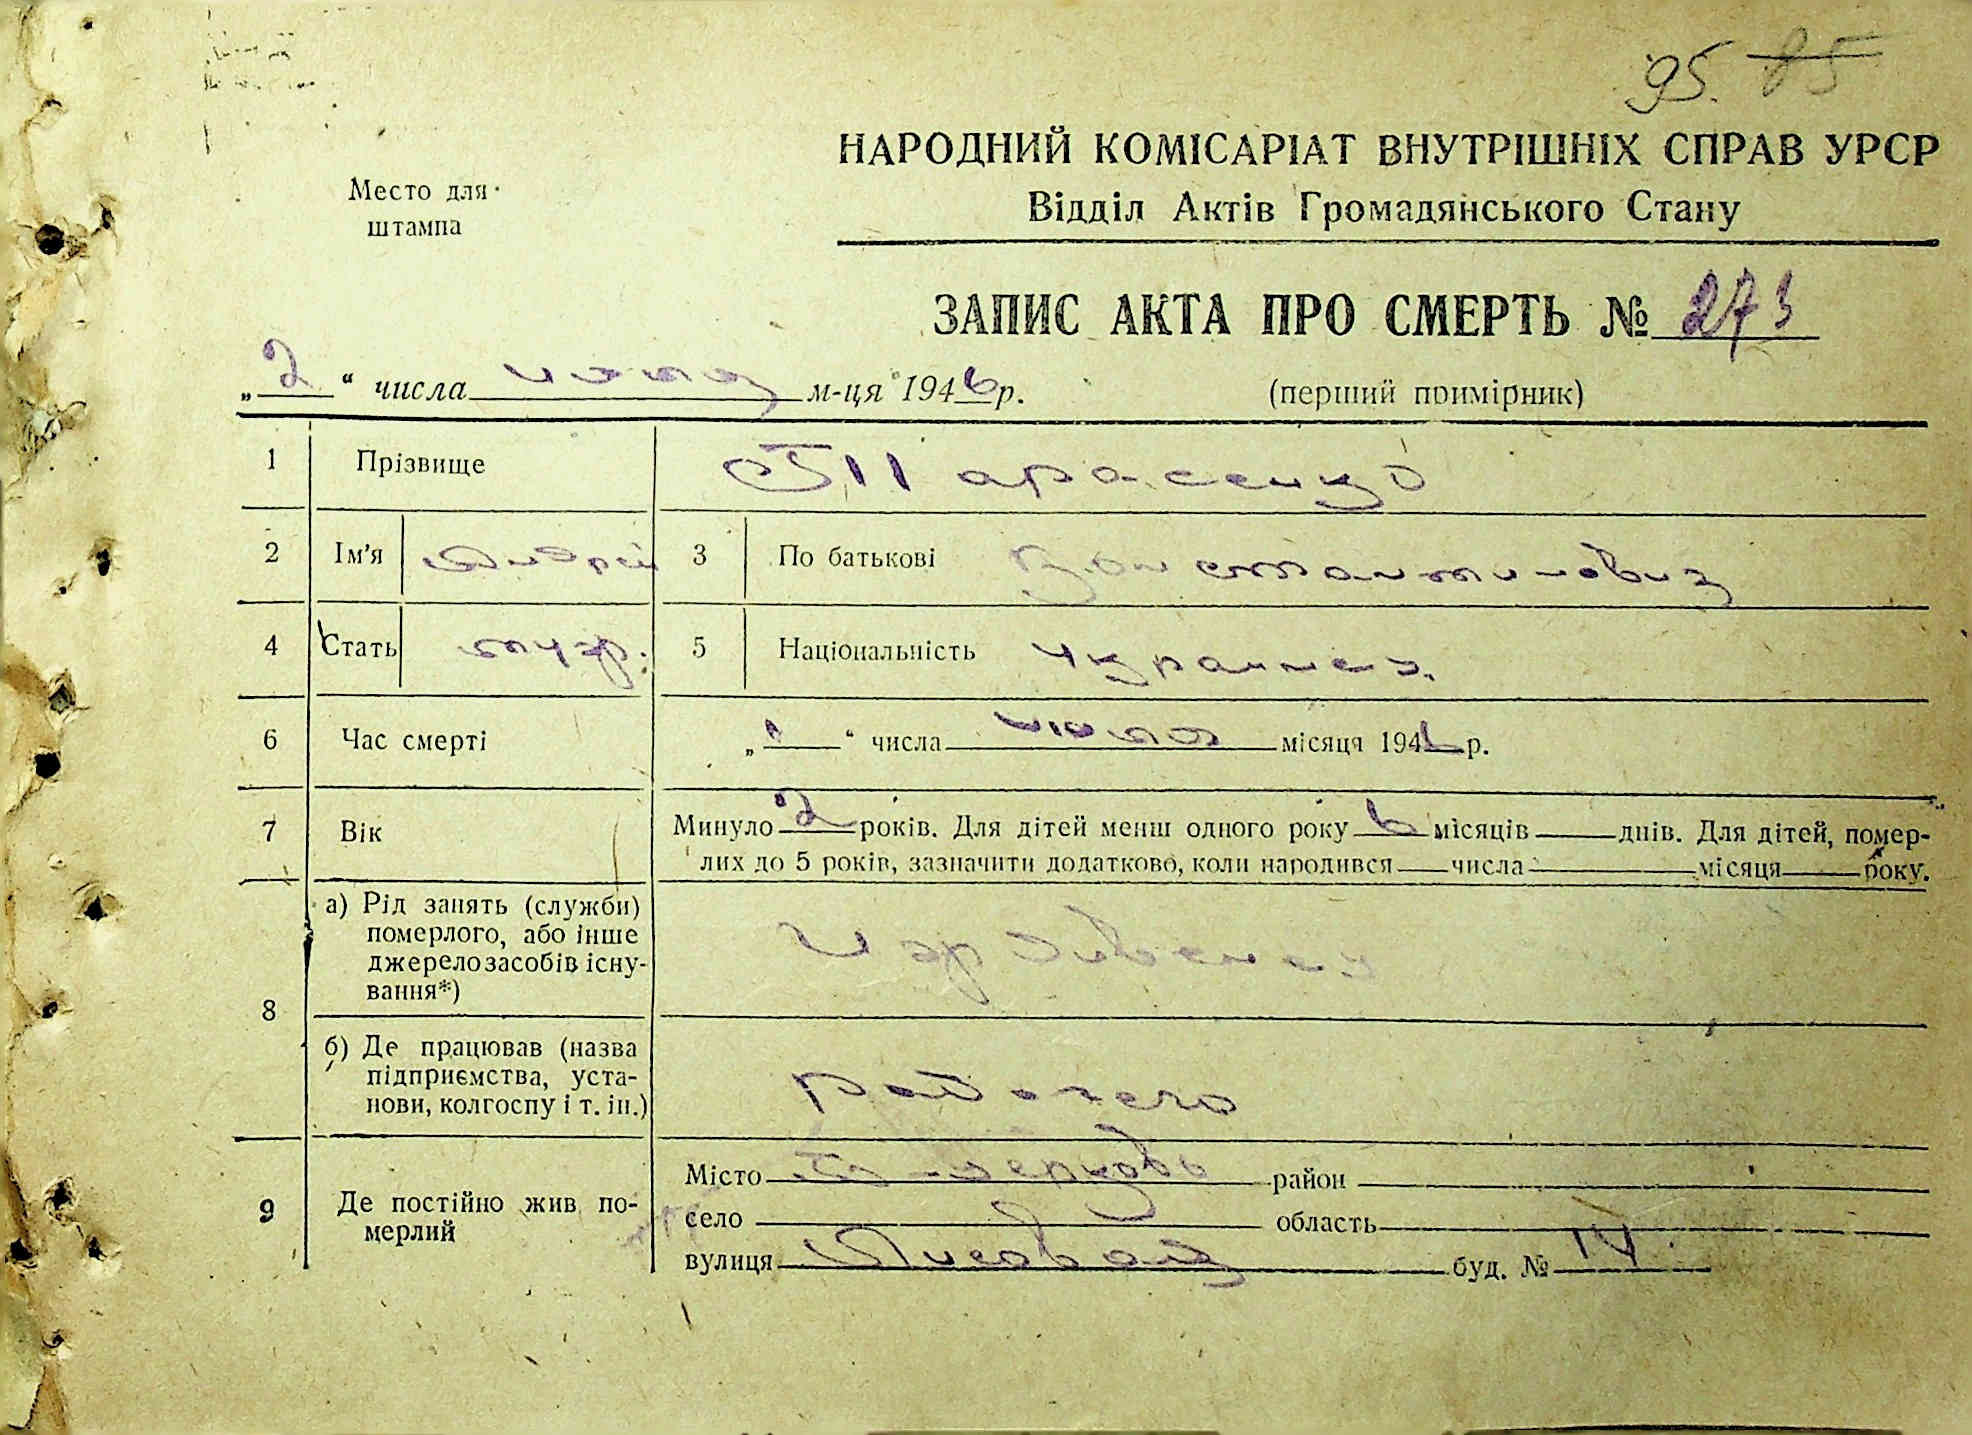 95. 85
НАРОДНИЙ КОМІСАРІАТ ВНУТРІШНІХ СПРАВ УРСР
Відділ Актів Громадянського Стану
Место для
штампа
ЗАПИС АКТА ПРО СМЕРТЬ № 273
„2“ числа июля м-ця 1946 р.
(перший примірник)
1 Прізвище Тарасенко
2 Ім'я Андрей 3 По батькові Константинович
4 Стать муж. 5 Національність Украинец.
6 Час смерті „1“ числа июля місяця 1946 р.
7 Вік Минуло 2 років. Для дітей менш одного року 6 місяців днів. Для дітей, помер-
лих до 5 років, зазначити додатково, коли народився числа місяця року.
8 а) Рід занять (служби)
померлого, або інше
джерело засобів існу-
вання*)
Иждивенец
б) Де працював (назва
підприємства, уста-
нови, колгоспу і т. ін.)
рабочего
9 Де постійно жив по-
мерлий
Місто Б-Церковь район
село область
вулиця буд. № 14